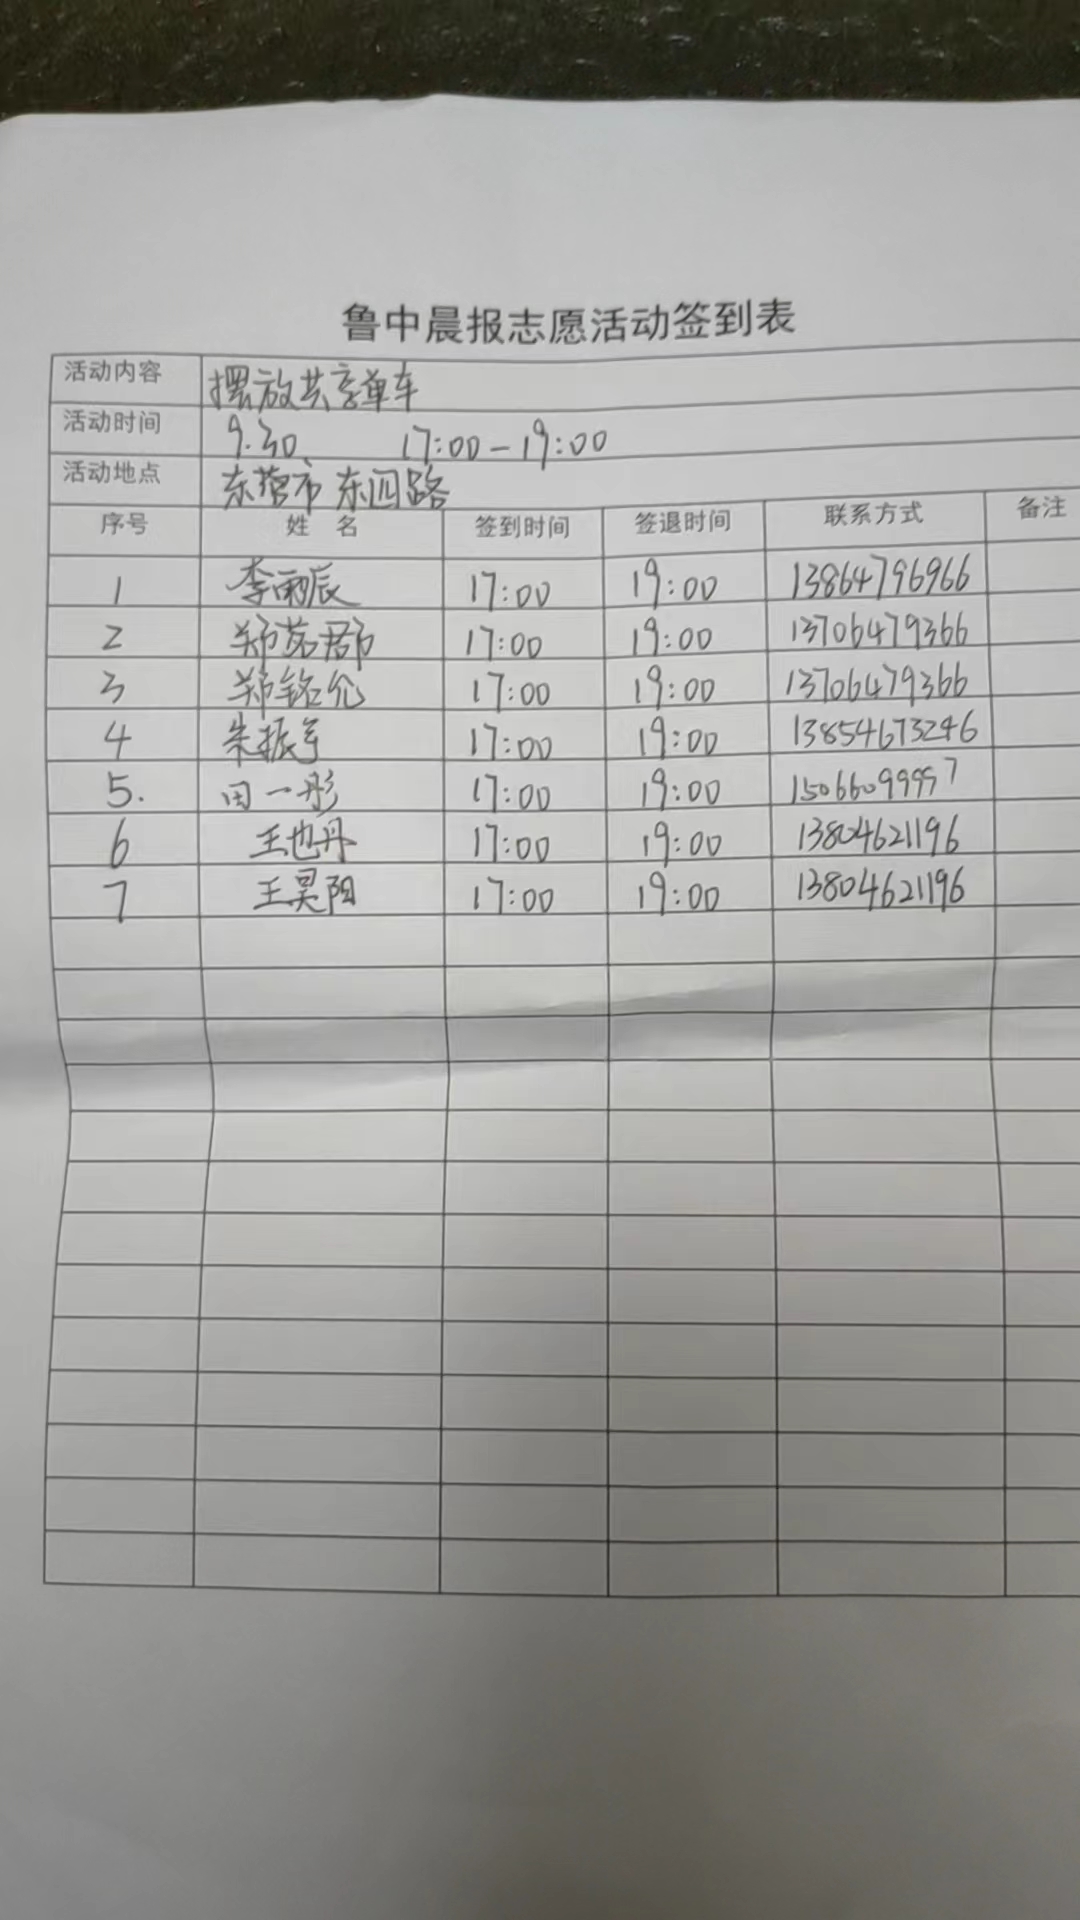 鲁中晨报志愿活动签到表
活动内容 摆放共享单车
活动时间 9.30 17:00-19:00
活动地点 东营市 东四路
序号 姓 名 签到时间 签退时间 联系方式 备注
1 李雨辰 17:00 19:00 13864796966
2 郑茗郡 17:00 19:00 13706479366
3 郑铭伦 17:00 19:00 13706479366
4 朱振 17:00 19:00 13854673246
5. 田一彤 17:00 19:00 15066099997
6 王也丹 17:00 19:00 13804621196
7 王昊阳 17:00 19:00 13804621196